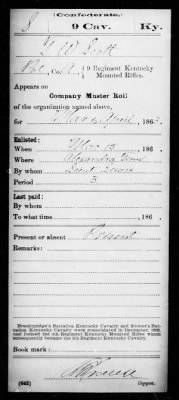 (Confederate.)
S 9 Cav. Ky.
W Scott
Pvt, Co. A, 9 Regiment Kentucky
Mounted Rifles.
Appears on
Company Muster Roll
of the organization named above,
for Mar & April, 1863.
Enlisted:
When Mar 15, 186
Where Alexandria Tenn
By whom Lieut
Period 3
Last paid:
By whom
To what time , 186 .
Present or absent Present
Remarks:
Breckinridge's Battalion Kentucky Cavalry and Stoner's Battalion Kentucky Cavalry were consolidated in December, 1862,
and formed the 9th Regiment Kentucky Mounted Rifles which
subsequently became the 9th Regiment Kentucky Cavalry.
Book mark:
(642) Copyist.